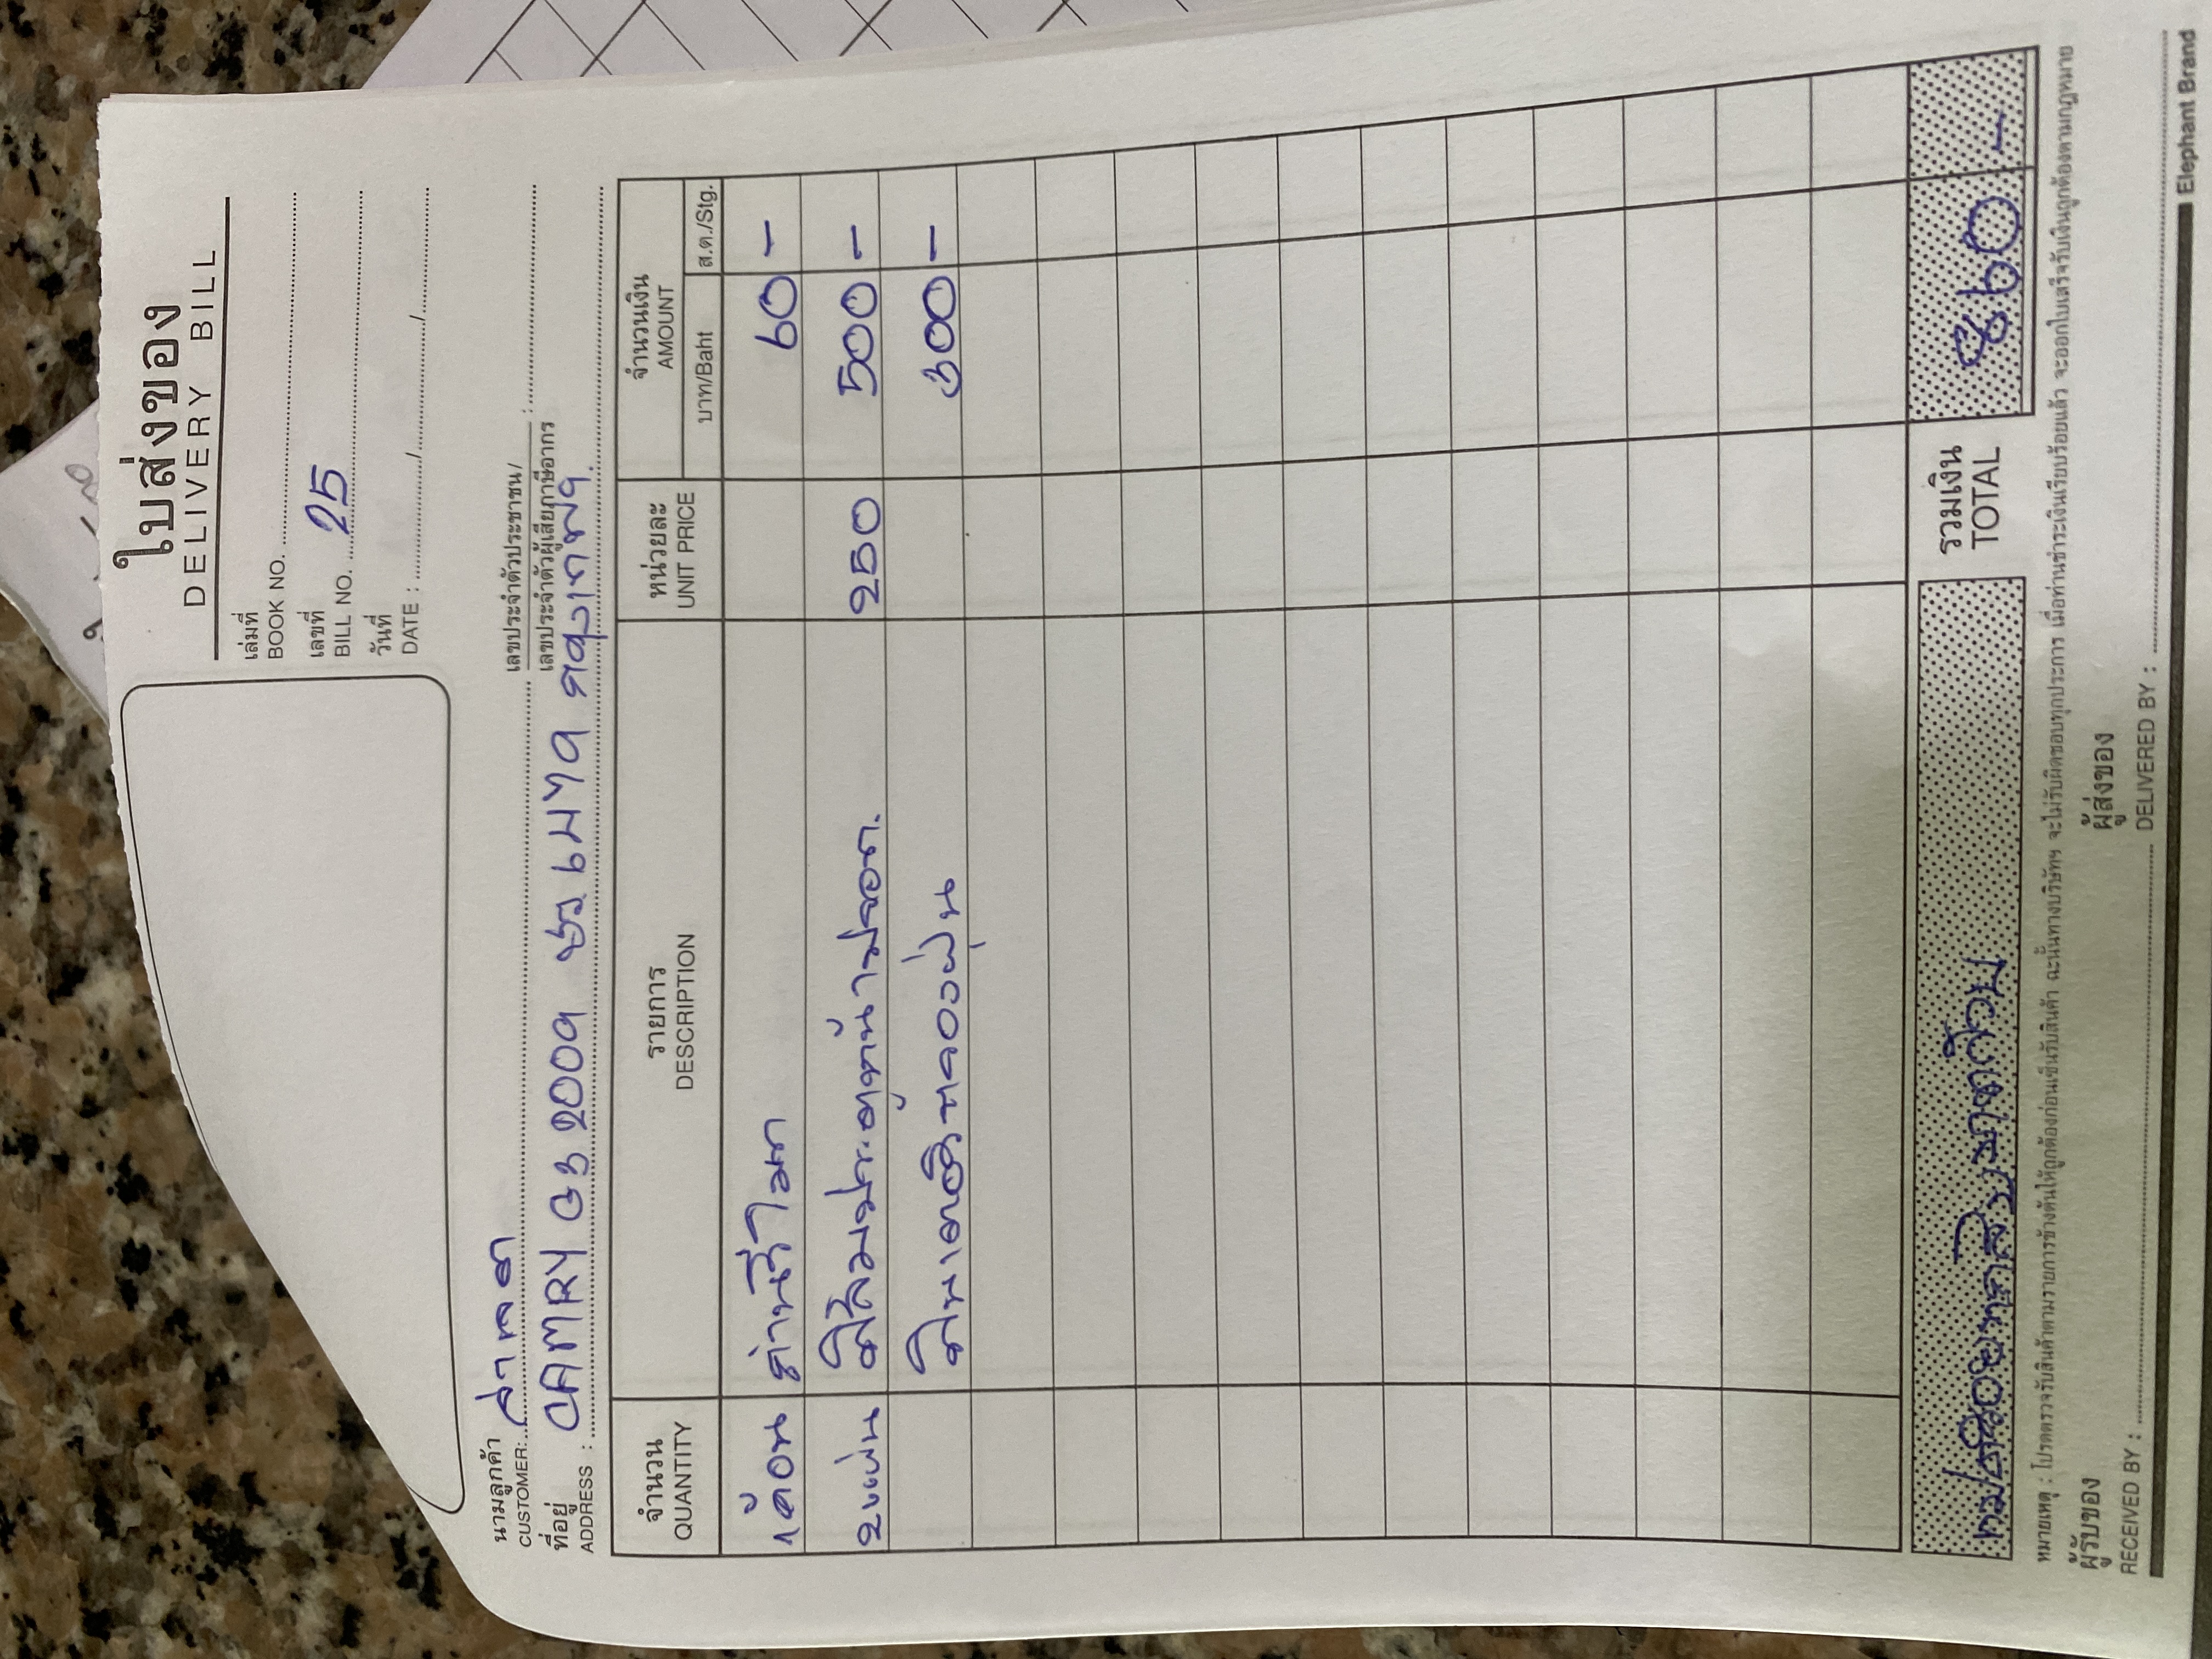 ใบส่งของ
DELIVERY BILL
เล่มที่
BOOK NO.
เลขที่
BILL NO. 25
วันที่
DATE : / /
นามลูกค้า
CUSTOMER:
เลขประจำตัวประชาชน/
เลขประจำตัวผู้เสียภาษีอากร :
ที่อยู่
ADDRESS : CAMRY 2009
จำนวน
QUANTITY
รายการ
DESCRIPTION
หน่วยละ
UNIT PRICE
จำนวนเงิน
AMOUNT
บาท/Baht
ส.ต./Stg.
1 ก้อน ถ่านรีโมท 60 -
2 แผ่น 250 500 -
300 -
รวมเงิน
TOTAL
860 -
หมายเหตุ : โปรดตรวจรับสินค้าตามรายการข้างต้นให้ถูกต้องก่อนเซ็นรับสินค้า ฉะนั้นทางบริษัทฯ จะไม่รับผิดชอบทุกประการ เมื่อท่านชำระเงินเรียบร้อยแล้ว จะออกใบเสร็จรับเงินถูกต้องตามกฎหมาย
ผู้รับของ
RECEIVED BY :
ผู้ส่งของ
DELIVERED BY :
Elephant Brand